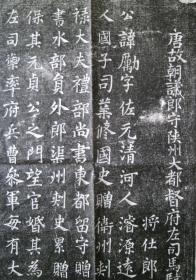 唐故朝議郎守陝州大都督府左司馬
將仕郎
公諱勵字佐元清河人濬源遠
人國子司業脩國史贈衛州刺
祿大夫禮部尚書東都留守贈
書水部員外郎渠州刺史累贈
保其元貞公之門望官婚其為
左司禦率府兵曹叅軍每有大